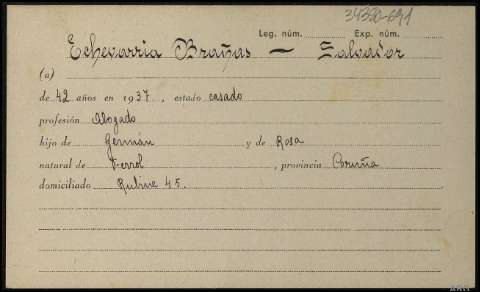 34350-691
Leg. núm. Exp. núm.
Echevarria Brañas — Salvador
(a)
de 42 años en 1937, estado casado
profesión Abogado
hijo de Germán y de Rosa
natural de Ferrol, provincia Coruña
domiciliado Rubine 45.